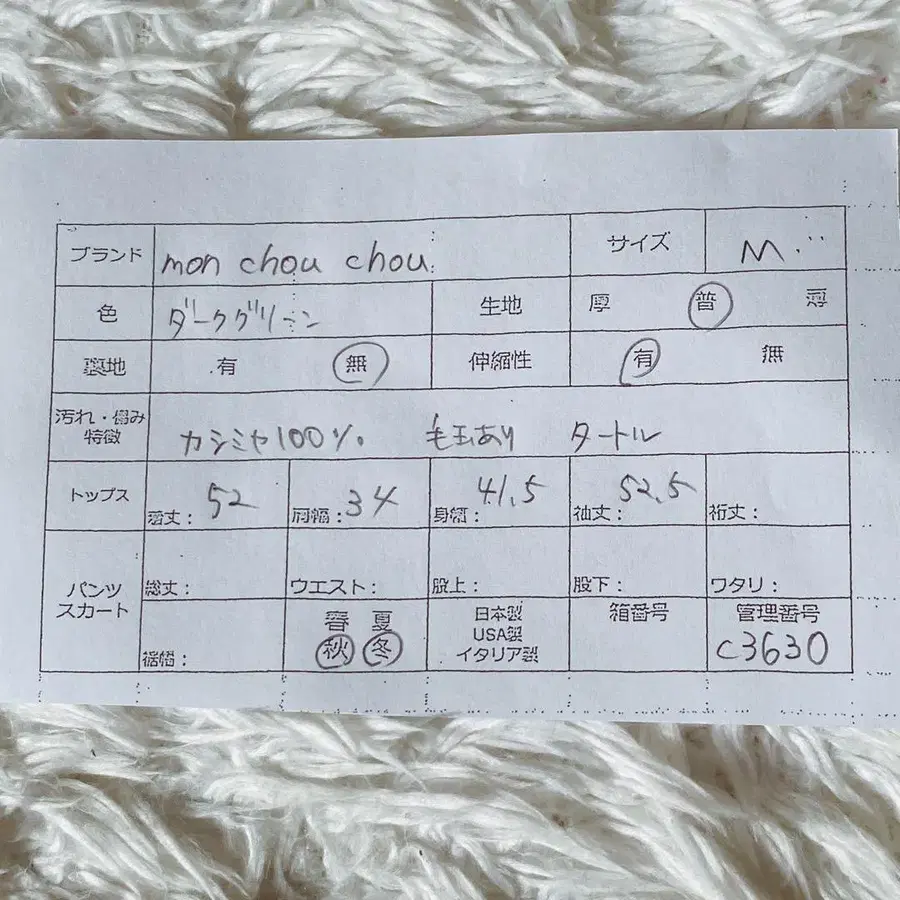 ブランド mon chou chou サイズ M
色 ダークグリーン 生地 厚 普 薄
裏地 有 無 伸縮性 有 無
汚れ・傷み
特徴 カシミヤ100% 毛玉あり タートル
トップス 着丈: 52 肩幅: 34 身幅: 41.5 袖丈: 52.5 裄丈:
パンツ
スカート 総丈: ウエスト: 股上: 股下: ワタリ:
裾幅: 春 夏
秋 冬
日本製
USA製
イタリア製
箱番号
管理番号
C3630